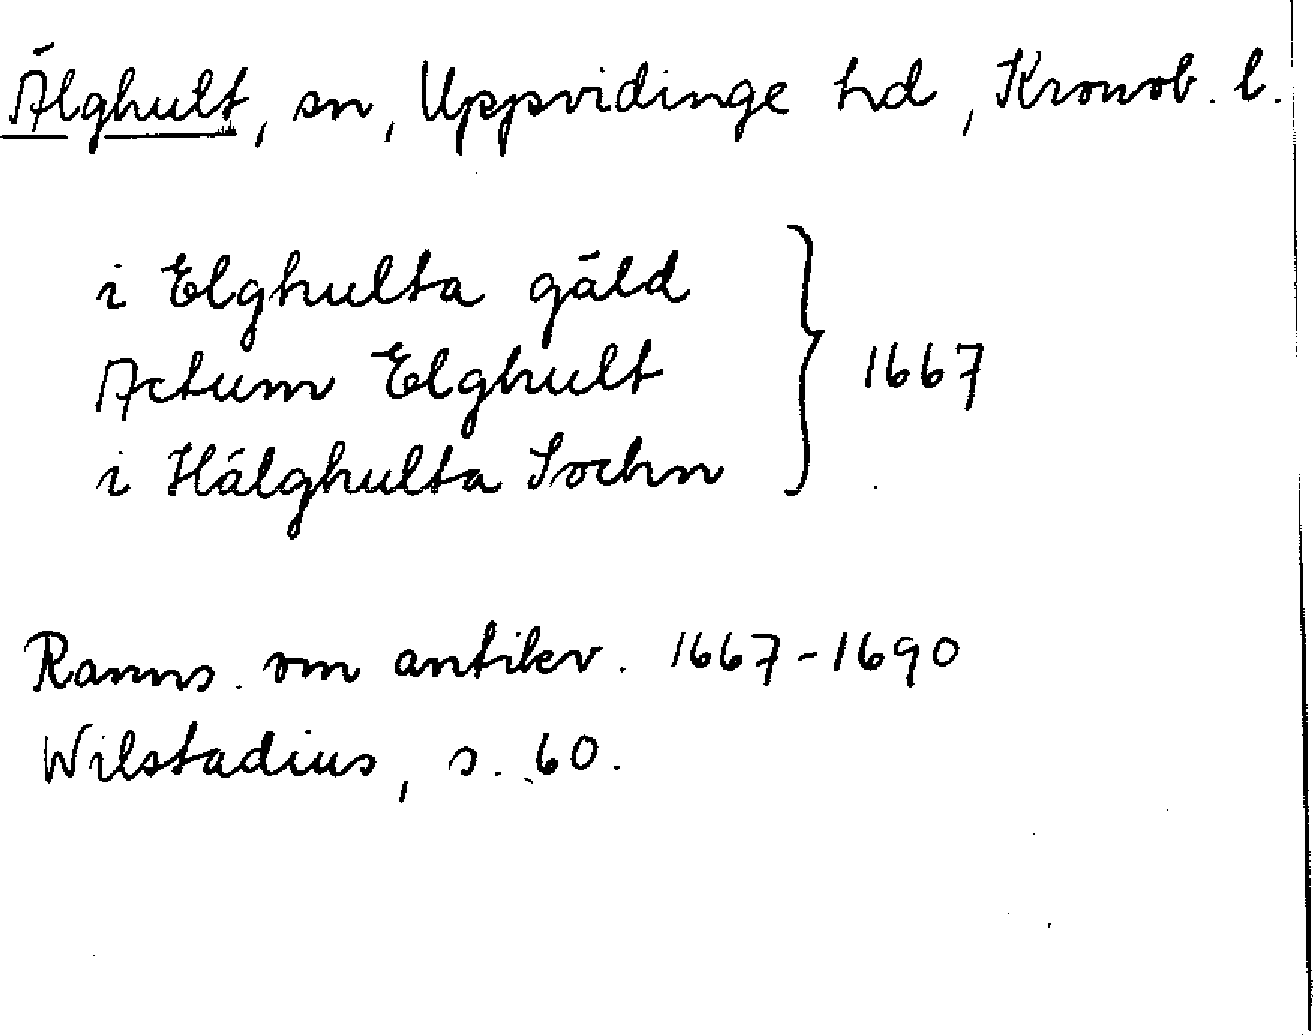 Älghult, sn, Uppvidinge hd, Kronob. l.
i Elghulta gäld
Actum Elghult } 1667
i Hälghulta Sochn
Ranns. om antikv. 1667-1690
Wilstadius, s. 60.